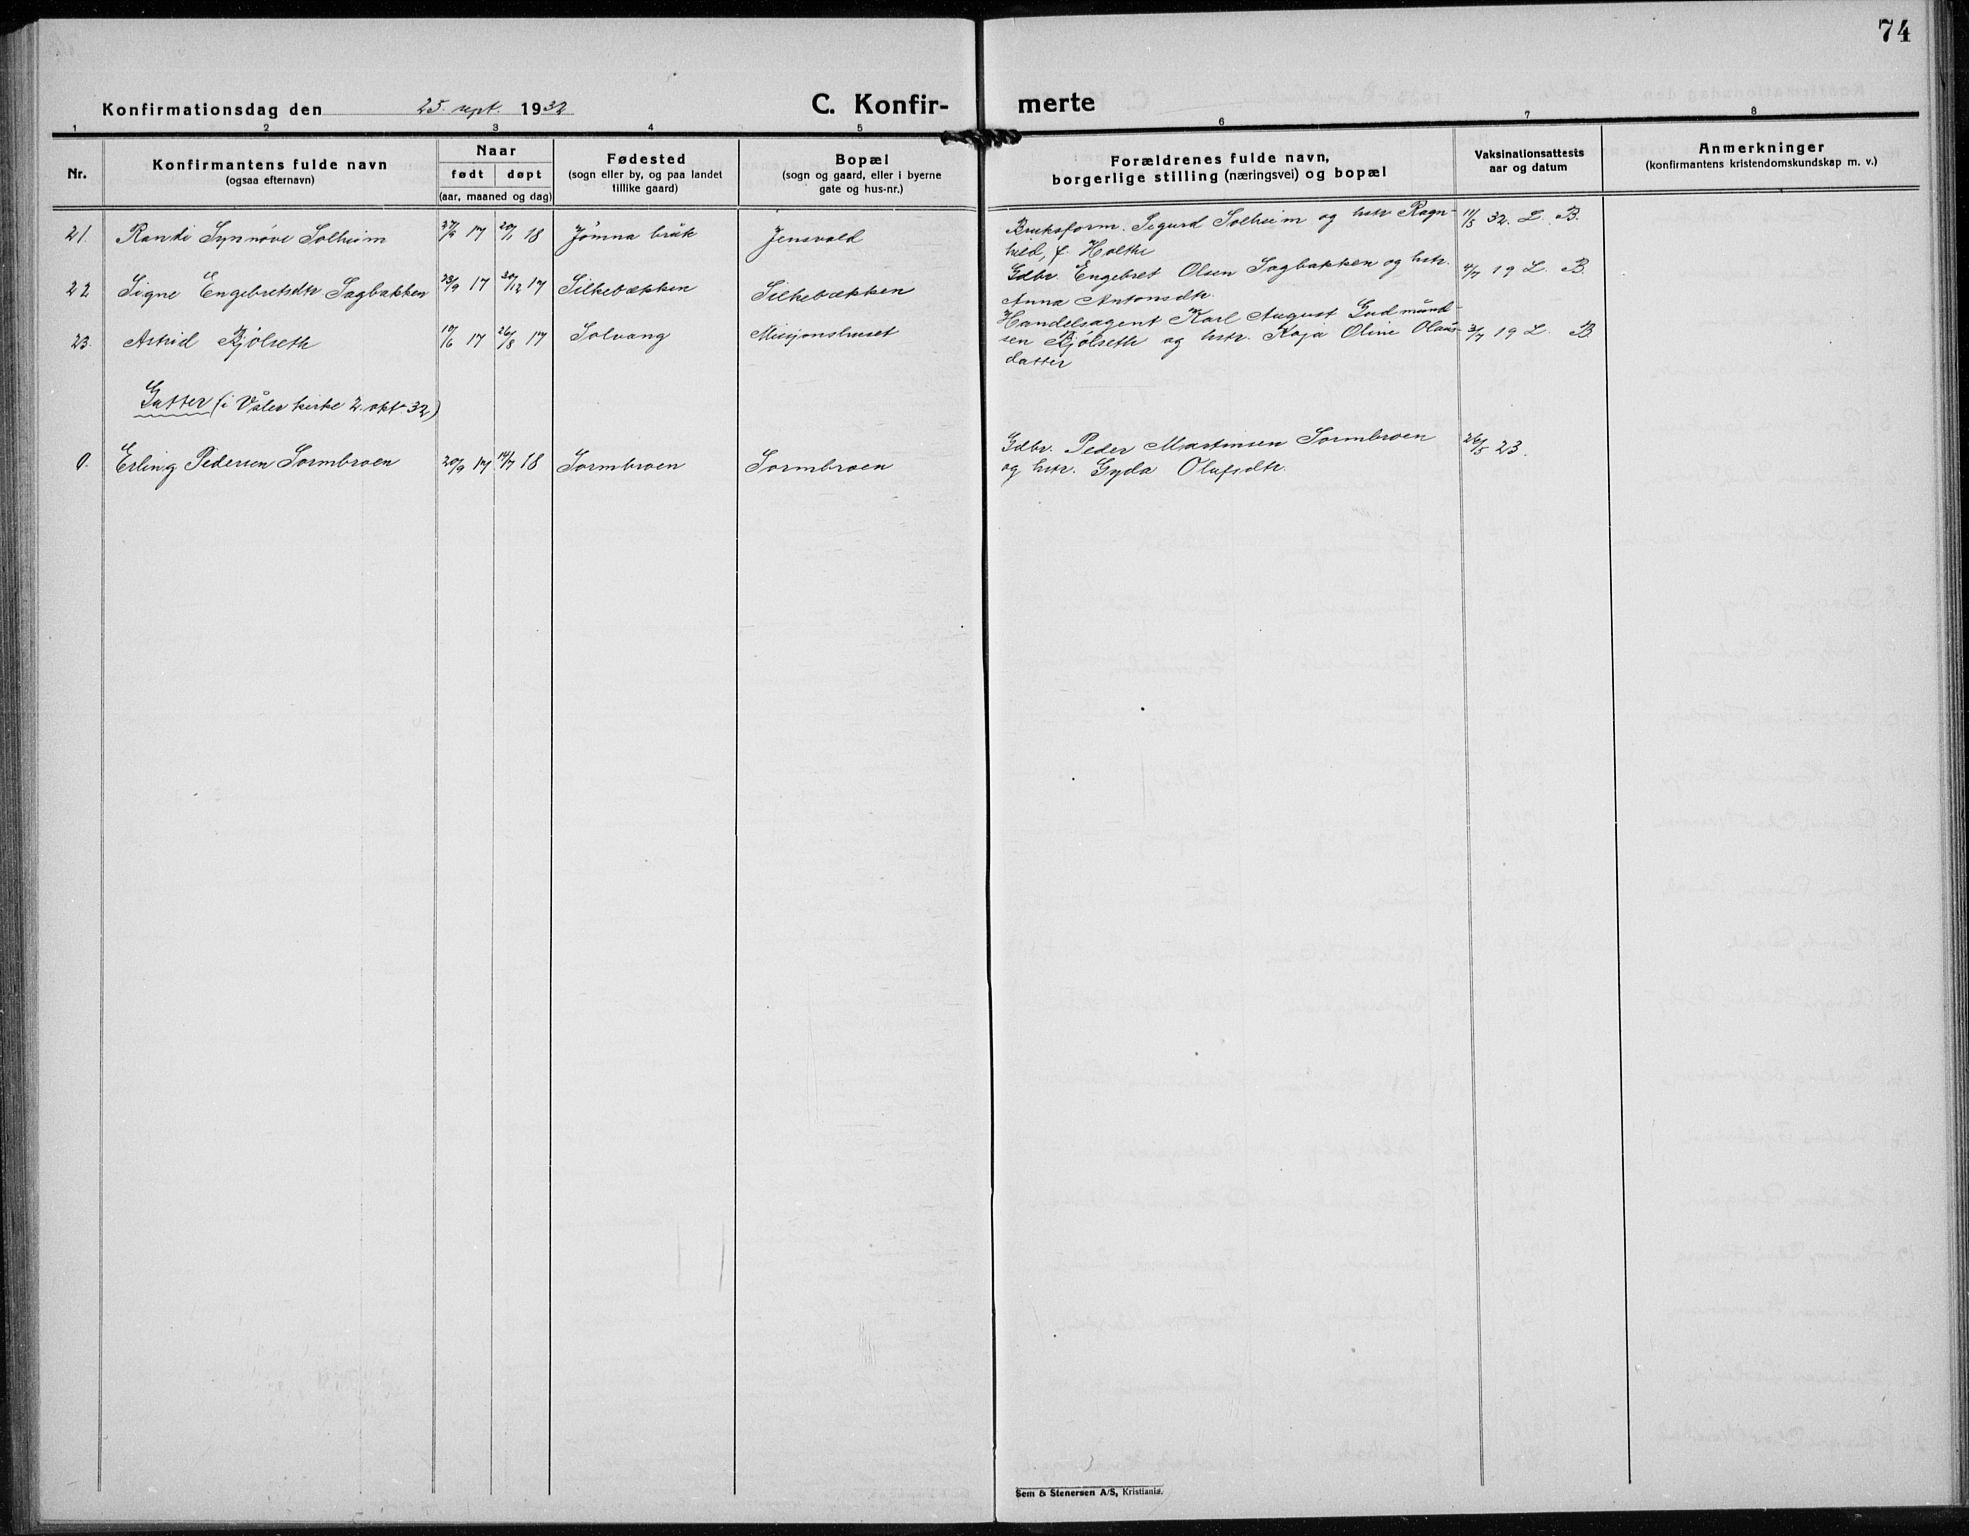 74
Konfirmationsdag den 25. sept. 1932
C. Konfir-
merte
1 2 3 4 5 6 7 8
Nr.
Konfirmantens fulde navn
(ogsaa efternavn)
Naar
født døpt
(aar, maaned og dag)
Fødested
(sogn eller by, og paa landet
tillike gaard)
Bopæl
(sogn og gaard, eller i byerne
gate og hus-nr.)
Forældrenes fulde navn,
borgerlige stilling (næringsvei) og bopæl
Vaksinationsattests
aar og datum
Anmerkninger
(konfirmantens kristendomskundskap m. v.)
21. Randi Synnøve Solheim 17 20/1 18 Jømna bruk Jensvold
Bruksform. Sigurd Solheim og hstr Ragn-
hild, f. Holthe
11/5 32. L. B.
22 Signe Engebretsdtr Sagbakken 23/9 17 30/12 17 Silkebækken Silkebækken
Gdbr. Engebret Olsen Sagbakken og hstr.
Anna Antonsdtr.
4/7 19 L. B.
23. Astrid Bjølseth 10/6 17 26/8 17 Solvang Misjonshuset
Handelsagent Karl August Gudmund-
sen Bjølseth og hstr. Kaja Oline Olaus-
datter
3/7 19 L. B
Gutter (i Våler kirke 2. okt 32)
0. Erling Pedersen Sormbroen 20/9 17 14/7 18 Sormbroen Sormbroen
Gdbr. Peder Martinsen Sormbroen
og hstr. Gyda Olufsdtr.
26/5 23.
Sem & Stenersen A/S, Kristiania.